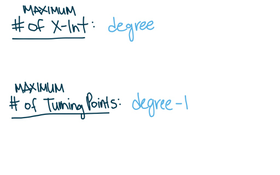 MAXIMUM
# of X-Int: degree
MAXIMUM
# of Turning Points: degree-1